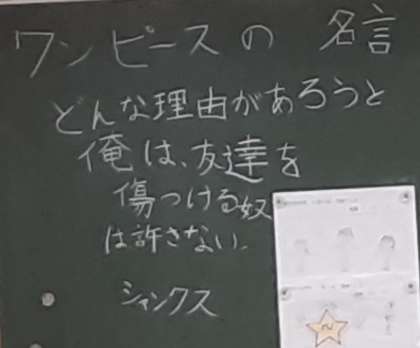 ワンピースの 名言
どんな理由があろうと
俺は、友達を
傷つける奴
は許さない。
シャンクス